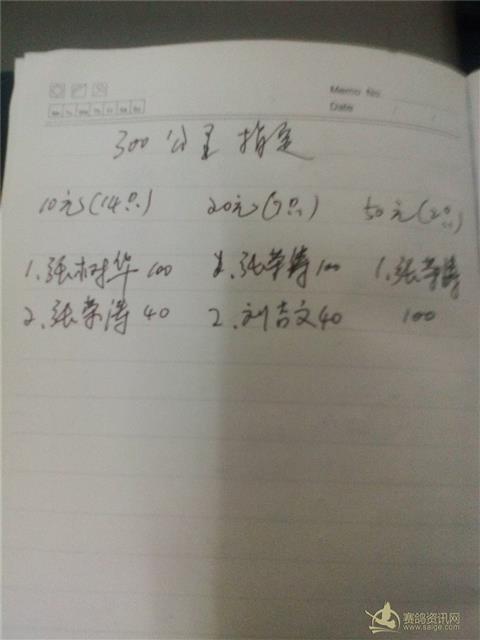 Memo No.
Date / /
Mo Tu We Th Fr Sa Su
300公里指定
10元(14只) 20元(7只) 50元(2只)
1.张树华 100 1.张荣涛 100 1.张荣涛
2.张荣涛 40 2.刘吉文 40 100
赛鸽资讯网
www.saige.com